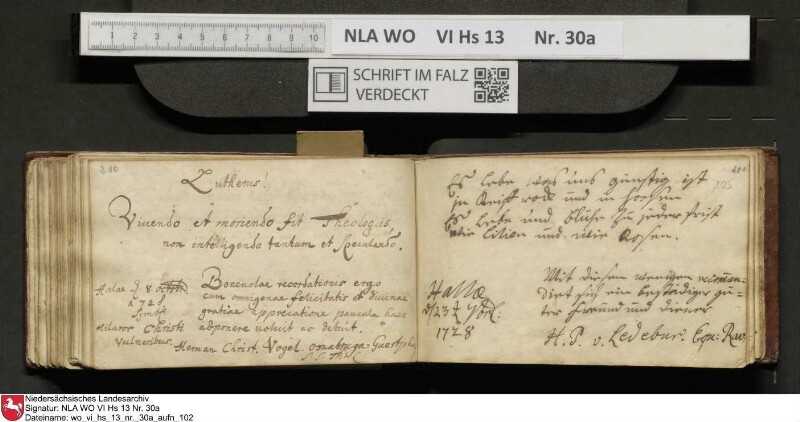 1 2 3 4 5 6 7 8 9 10
NLA WO VI Hs 13 Nr. 30a
SCHRIFT IM FALZ
VERDECKT
310
Lutherus!
Vivendo et moriendo fit Theologus,
non intelligendo tantum et speculando.
Halae d. 8
1728
Symb:
Hilaros Christi
vulneribus.
Benevolae recordationis ergo
cum omnigenae felicitatis et divinae
gratiae appreciatione paucula haec
adponere voluit ac debuit.
Herman Christ. Vogel.
311
195
Es lebe was uns günstig ist
in Reiff rock und in hosen
Es lebe und blühe zu jeder frist
wie Lilien und wie Rosen.
Halle
1728
Mit diesen wenigen recomen-
diret sich ein beständiger gu-
ter freund und diener
H. P. v. Ledebur. Equ:
Niedersächsisches Landesarchiv
Signatur: NLA WO VI Hs 13 Nr. 30a
Dateiname: wo_vi_hs_13_nr._30a_aufn_102